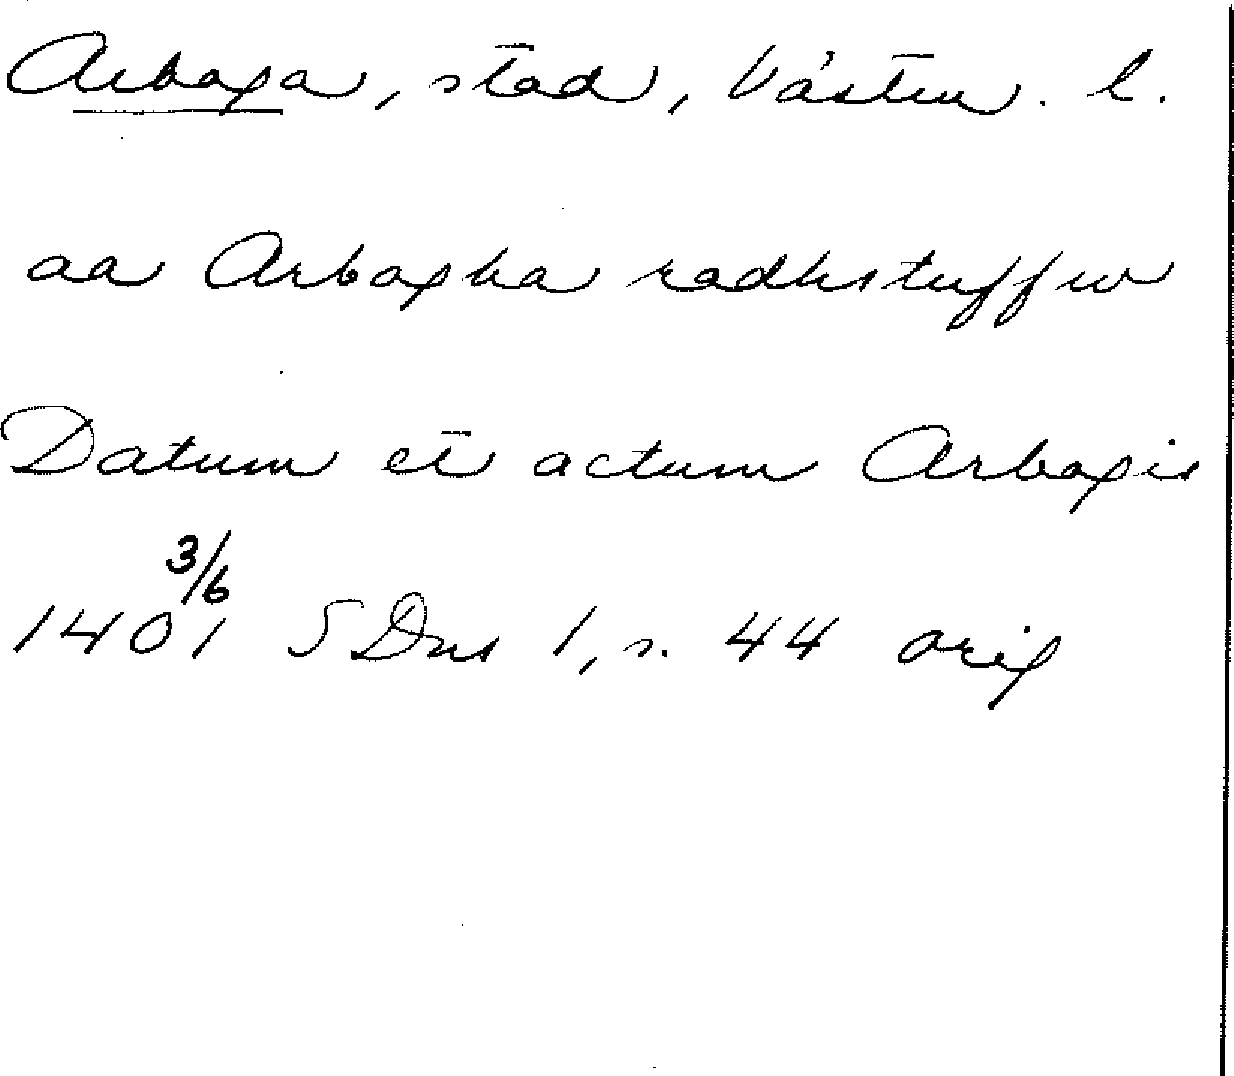 Arboga, stad, Västm. l.
aa Arbogha radhstuffw
Datum et actum Arbogis
3/6
1401 SDns 1, s. 44 orig